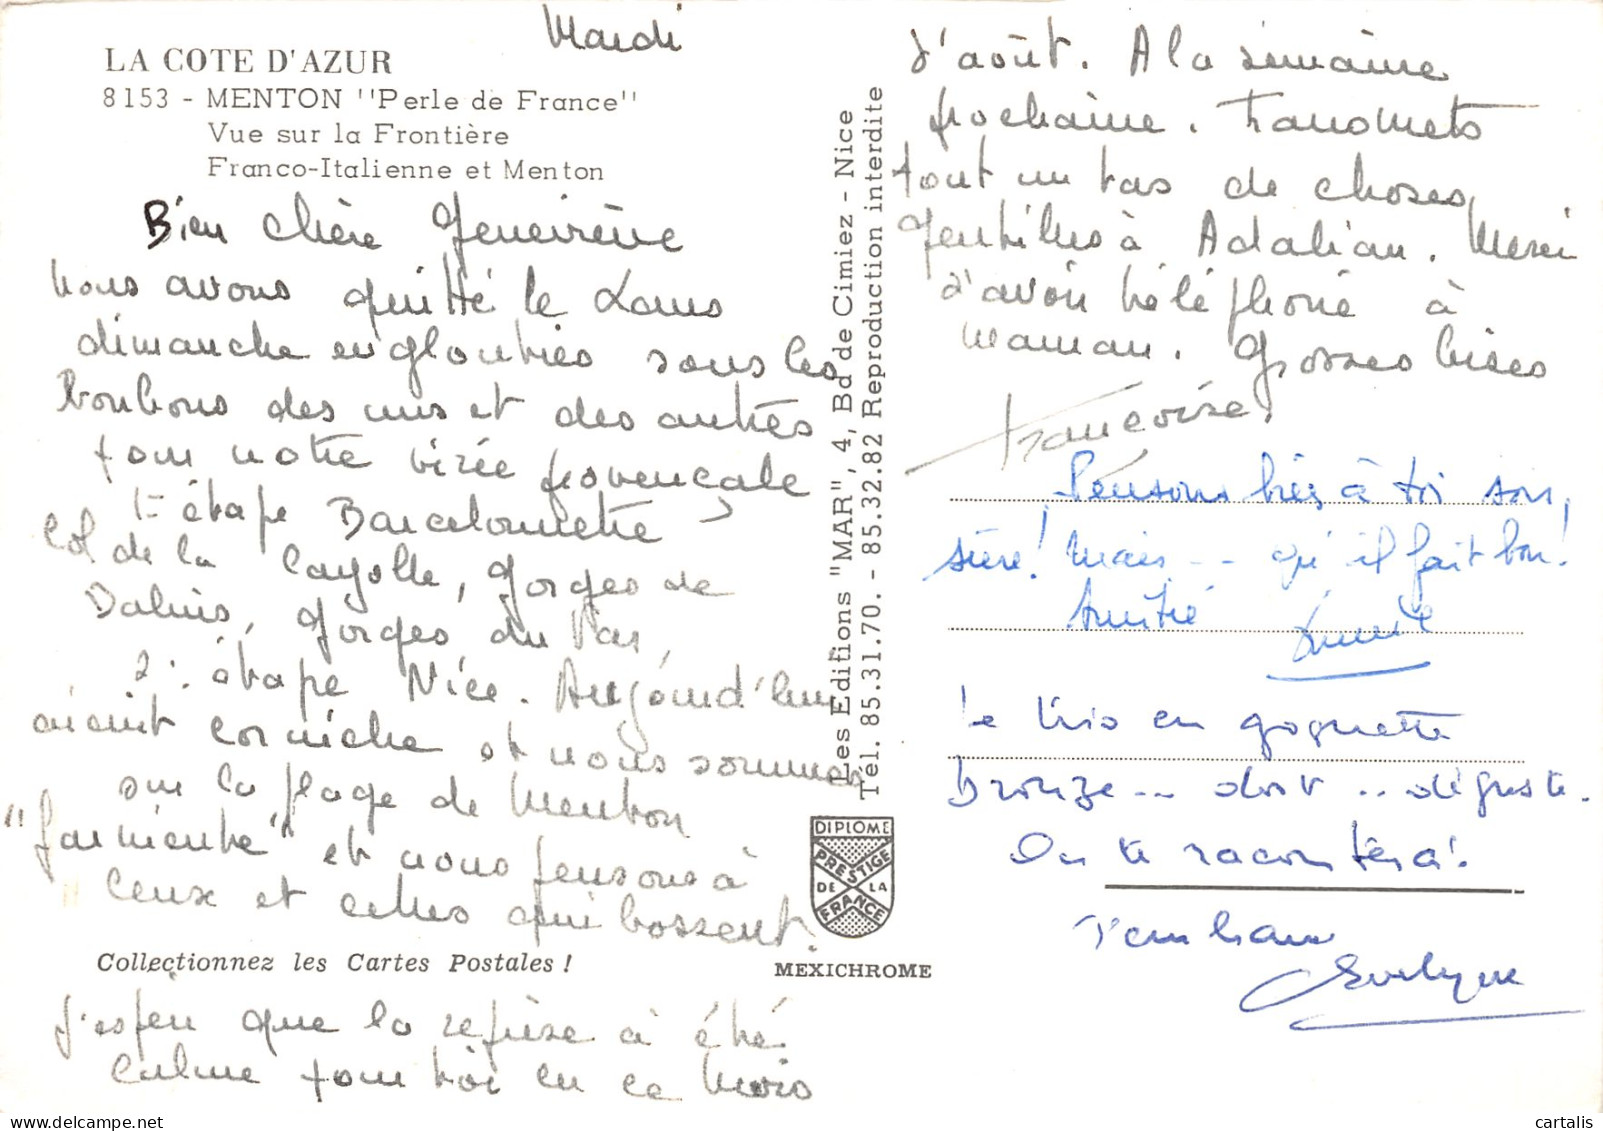 Mardi
LA COTE D'AZUR
8153 - MENTON ''Perle de France''
Vue sur la Frontière
Franco-Italienne et Menton
Bien chère Geneviève
Nous avons quitté le Laus
dimanche englouties sous les
bonbons des uns et des autres
pour notre virée provençale
1- étape Barcelonnette
Col de la Cayolle, gorges de
Daluis, gorges du Var,
2: étape Nice. Aujourd'hui
corniche et nous sommes
sur la plage de Menton
"farniente" et nous pensons à
ceux et celles qui bossent.
Collectionnez les Cartes Postales !
J'espère que la reprise a été
calme pour toi en ce mois
d'août. A la semaine
prochaine. Transmets
tout un tas de choses
gentilles à Adalian. Merci
d'avoir téléphoné à
maman. Grosses bises
Françoise.
Pensons bien à toi
Mais -- qu'il fait bon!
Amitié
Le trio en goguette
bronze -- dort .. déguste.
On te racontera!
Evelyne
Les Editions "MAR", 4, Bd de Cimiez - Nice
Tél. 85.31.70. - 85.32.82 Reproduction interdite
DIPLOME
PRESTIGE
DE LA
FRANCE
MEXICHROME
cartalis